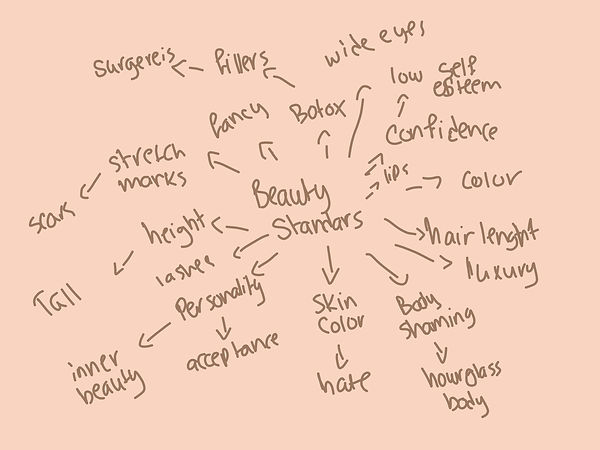 wide eyes
surgereis
fillers
low self
esteem
fancy
Botox
Confidence
stretch
marks
lips
color
Beauty
Standars
scars
height
hair lenght
lashes
luxury
Tall
Personality
Skin
Color
Body
shaming
inner
beauty
acceptance
hate
hourglass
body